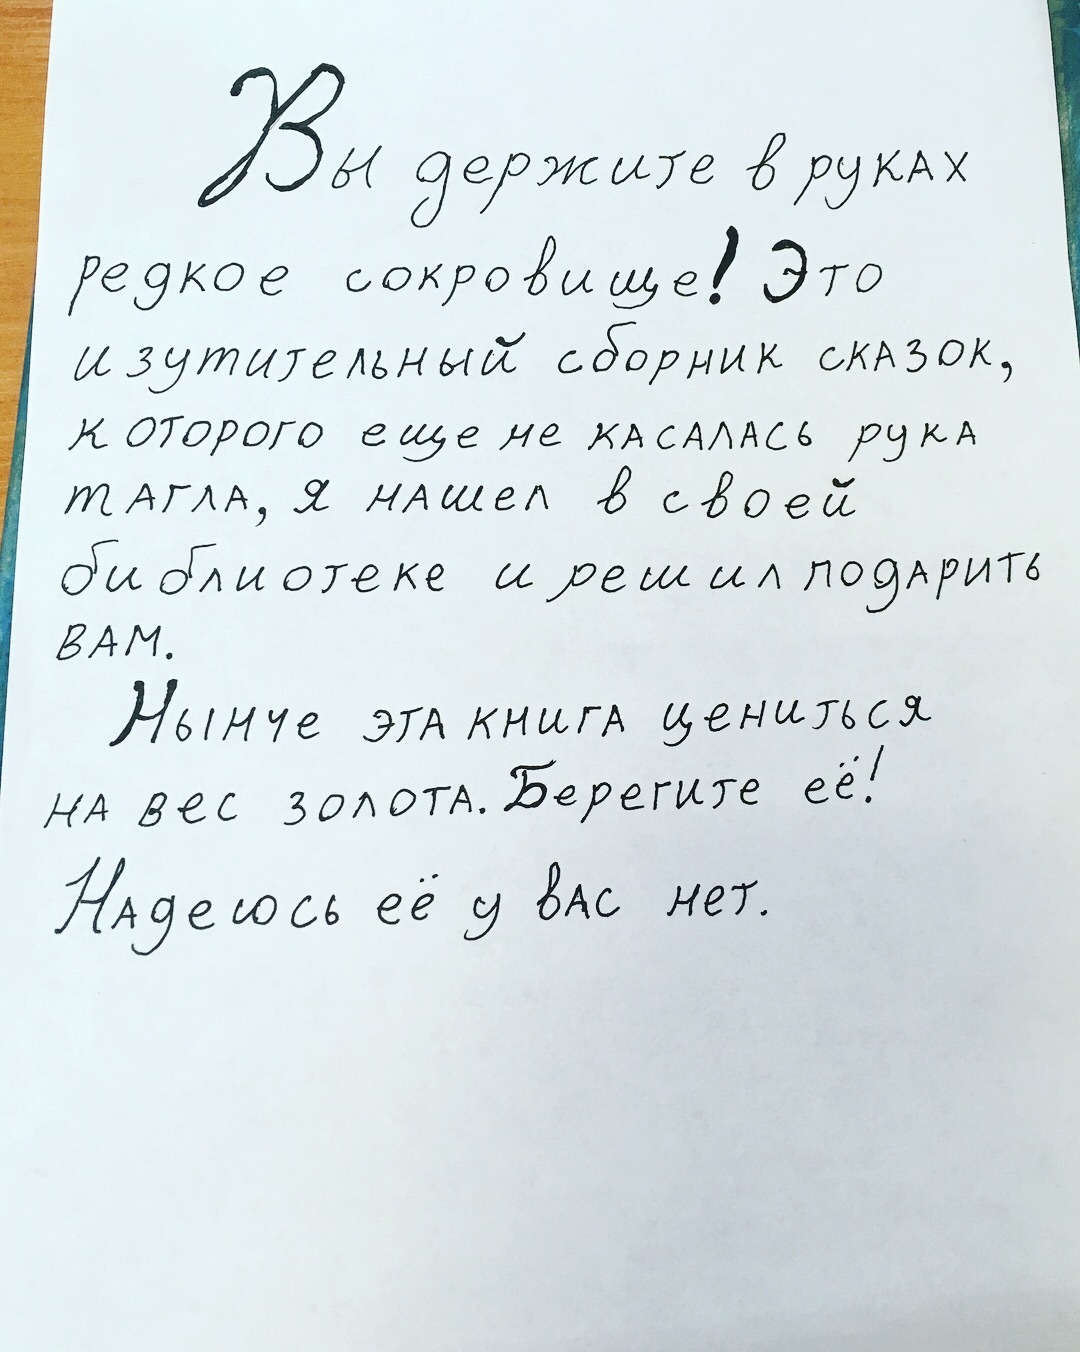 Вы держите в руках
редкое сокровище! Это
изутительный сборник сказок,
которого еще не касалась рука
тагла, я нашел в своей
библиотеке и решил подарить
вам.
Нынче эта книга цениться
на вес золота. Берегите её!
Надеюсь её у вас нет.